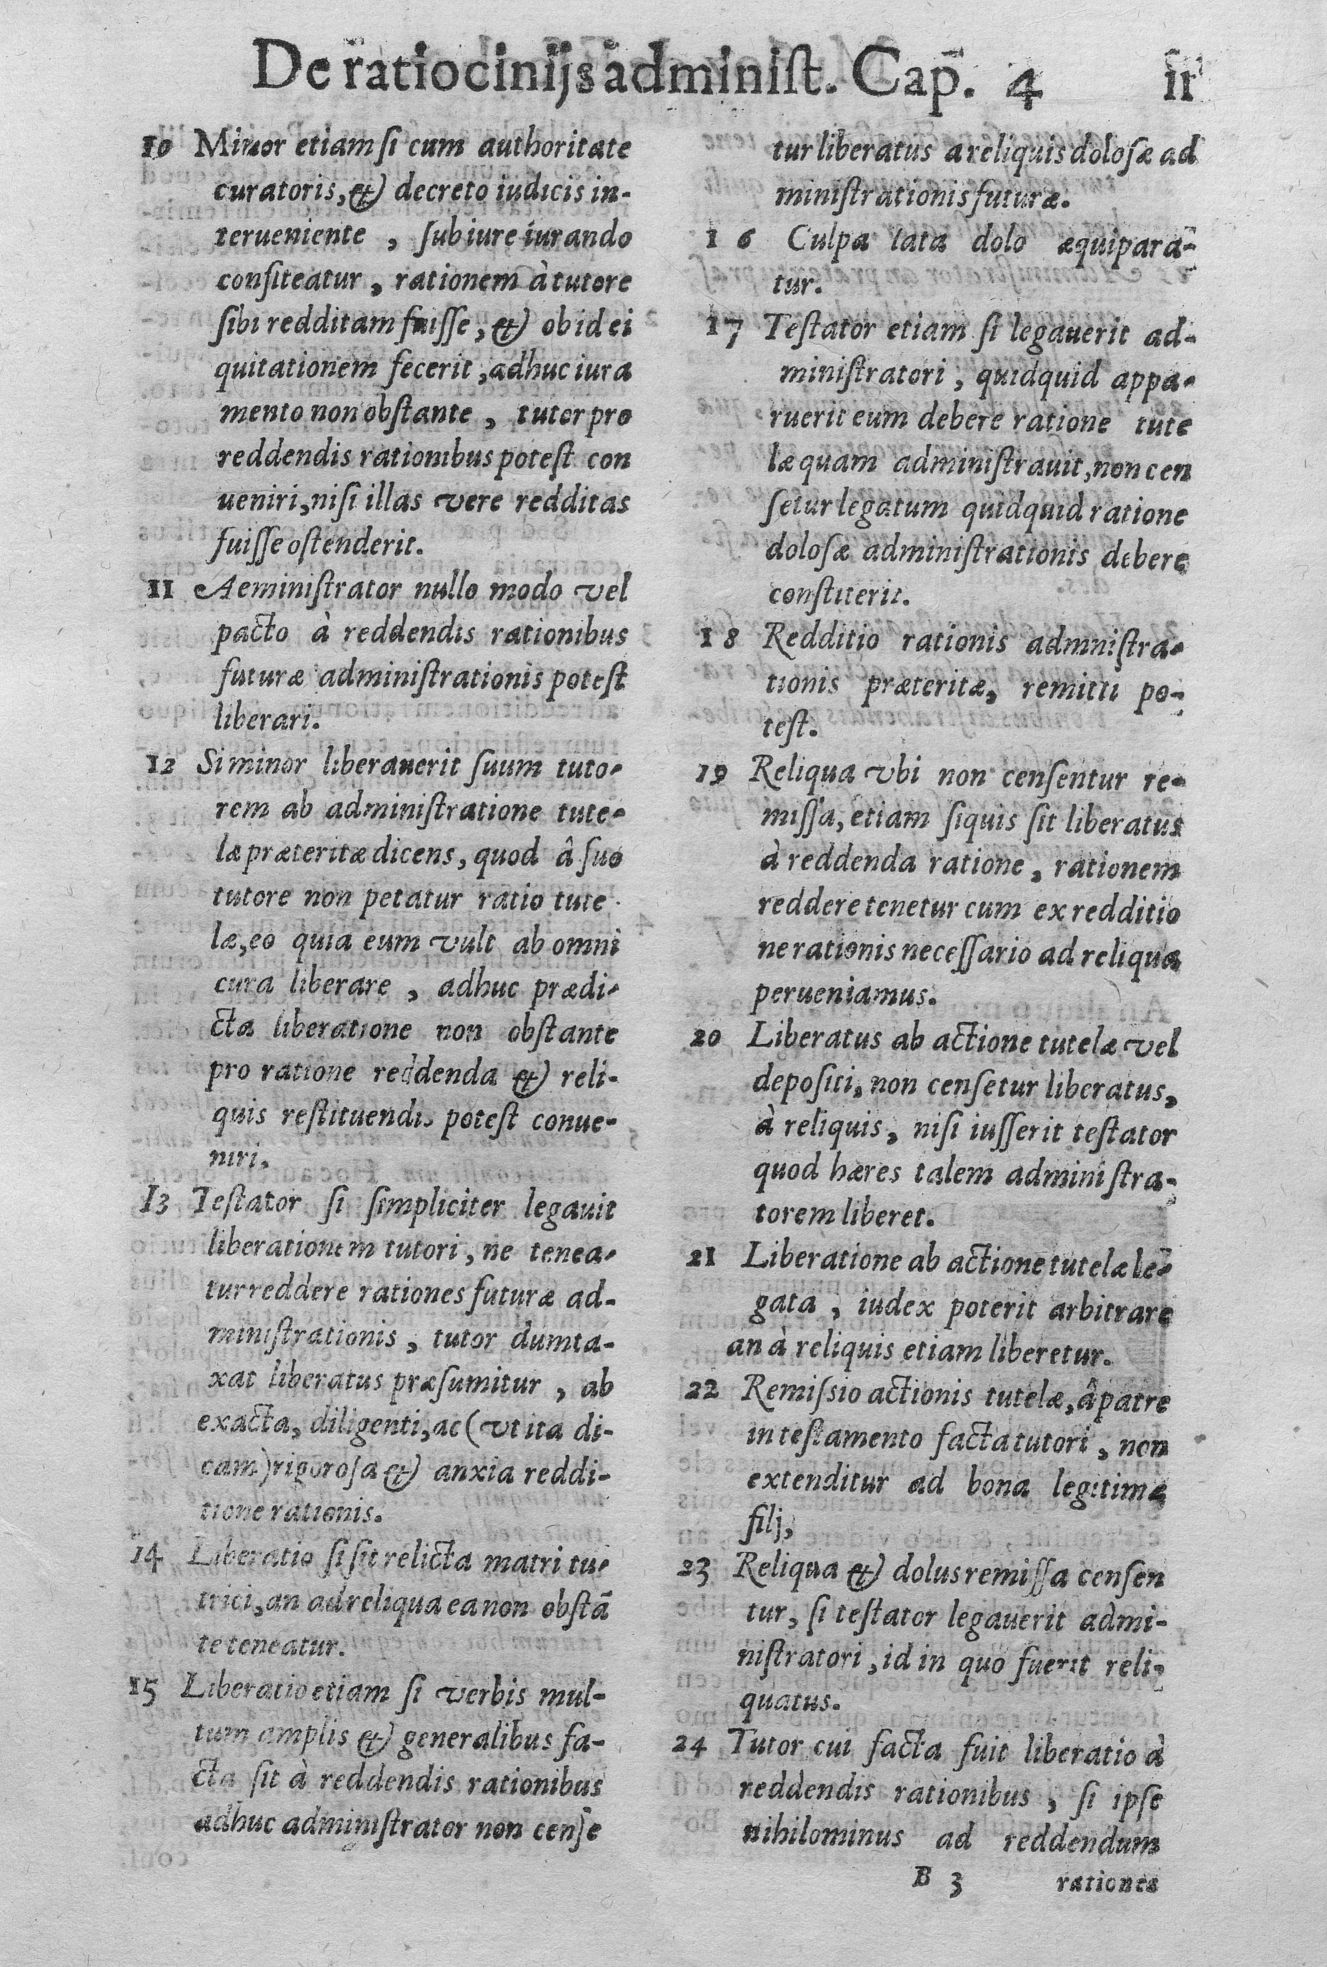 De ratiociniis administ. Cap̃. 4 11
10 Minor etiam si cum authoritate
curatoris, & decreto iudicis in-
terueniente, sub iure iurando
consiteatur, rationem à tutore
sibi redditam fuisse, & ob id ei
quitationem fecerit, adhuc iura
mento non obstante, tutor pro
reddendis rationibus potest con
ueniri, nisi illas vere redditas
fuisse ostenderit.
11 Aeministrator nullo modo vel
pacto à reddendis rationibus
futuræ administrationis potest
liberari.
12 Si minor liberauerit suum tuto-
rem ab administratione tute-
læ præteritæ dicens, quod â suo
tutore non petatur ratio tute
læ, eo quia eum vult ab omni
cura liberare, adhuc prædi-
cta liberatione non obstante
pro ratione reddenda & reli-
quis restituendis potest conue-
niri.
13 Testator si simpliciter legauit
liberationem tutori, ne tenea-
tur reddere rationes futuræ ad-
ministrationis, tutor dumta-
xat liberatus præsumitur, ab
exacta, diligenti, ac (vt ita di-
cam) rigorosa & anxia reddi-
tione rationis.
14 Liberatio si sit relicta matri tu-
trici, an ad reliqua ea non obstã
te teneatur.
15 Liberatio etiam si verbis mul-
tum amplis & generalibus fa-
cta sit à reddendis rationibus
adhuc administrator non cense
tur liberatus a reliquis dolosæ ad
ministrationis futuræ.
16 Culpa lata dolo æquipara-
tur.
17 Testator etiam si legauerit ad-
ministratori, quidquid appa-
ruerit eum debere ratione tute
læ quam administrauit, non cen
setur legatum quidquid ratione
dolosæ administrationis debere
constiterit.
18 Redditio rationis admnistra-
tionis præteritæ, remitti po-
test.
19 Reliqua vbi non censentur re-
missa, etiam siquis sit liberatus
à reddenda ratione, rationem
reddere tenetur cum ex redditio
ne rationis necessario ad reliqua
perueniamus.
20 Liberatus ab actione tutelæ vel
depositi, non censetur liberatus,
à reliquis, nisi iusserit testator
quod hæres talem administra-
torem liberet.
21 Liberatione ab actione tutelæ le-
gata, iudex poterit arbitrare
an à reliquis etiam liberetur.
22 Remissio actionis tutelæ, â patre
in testamento facta tutori, non
extenditur ad bona legitimæ
filij,
23 Reliqua & dolus remissa censen
tur, si testator legauerit admi-
nistratori, id in quo fuerit reli-
quatus.
24 Tutor cui facta fuit liberatio à
reddendis rationibus, si ipse
nihilominus ad reddendum
B 3 rationes